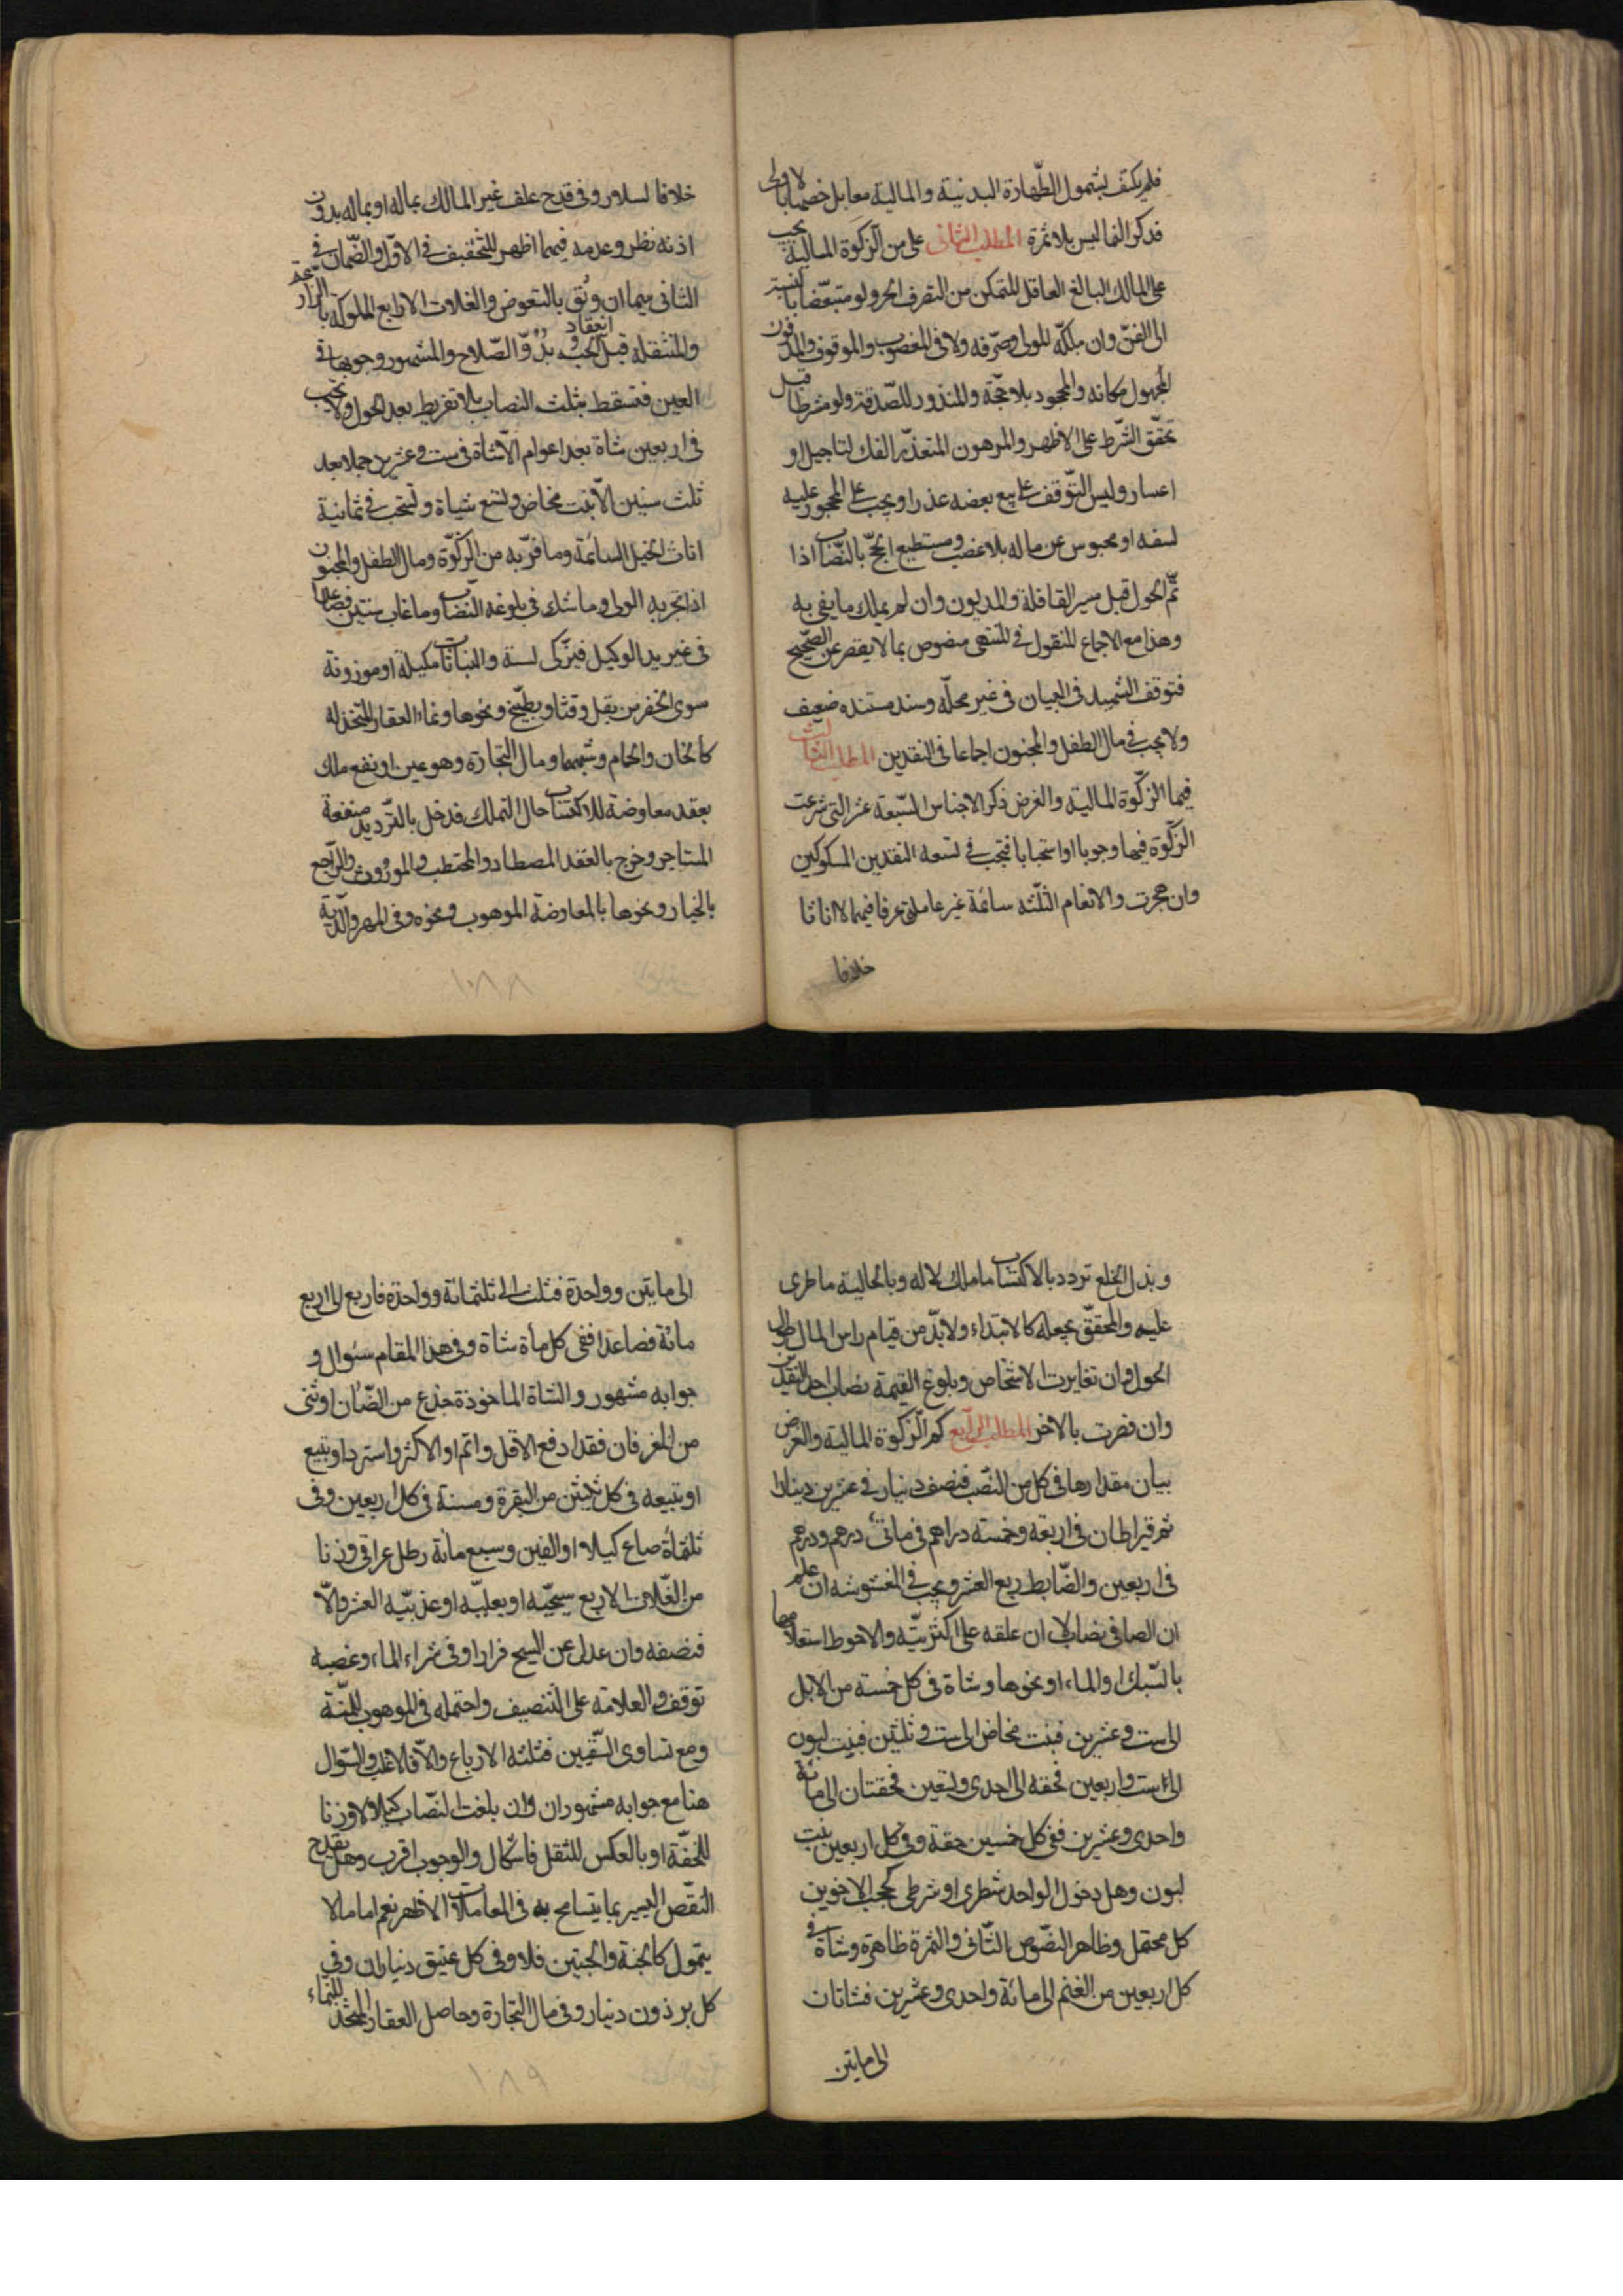 فلم يكتف بشمول الطّهارة البدنية والمالية معا بل خصّها بالاولى
فذكر النما ليس بلا ثمرة المطلب الثانى على من الزّكوة المالية يجب
على المالك البالغ العاقل المتمكن من التصرف الحر ولو متبعّضا بالنسبة
الى القنّ وان ملكّه المولى وصرّفه ولا فى المغصوب والموقوف والمدفون
المجهول مكانه والمجحود بلا حجّة والمنذور للصّدقة ولو مشرطا قبل
تحقّق الشّرط على الاظهر والمرهون المتعذّر الفك لتاجيل او
اعسار وليس التّوقف على بيع بعضه عذرا ويجب على المحجور عليه
لسفه او محبوس عن ماله بلا غصب ومستطيع الحجّ بالنّصاب اذا
تمّ الحول قبل مسير القافلة والمديون وان لم يملك ما يفى به
وهذا مع الاجماع المنقول فى المنتهى منصوص بما لا يقصر عن الصّحيح
فتوقف الشهيد فى البيان فى غير محلّه وسند مستنده ضعيف
ولا يجب فى مال الطفل والمجنون اجماعا فى النقدين المطلب الثالث
فيما الزّكوة المالية والغرض ذكر الاجناس السّبعة عشر التى شرعت
الزّكوة فيها وجوبا او استحبابا فتجب فى تسعه النقدين المسكوكين
وان هجرت والانعام الثلثه سائمة غير عاملتى عرفا فيهما لا اناثا
خلافا
خلافا لسلار وفى قدح علف غير المالك بماله او بماله بدون
اذنه نظر وعدمه فيهما اظهر للتخفيف فى الاوّل والضّمان فى
الثانى سيما ان وثق بالتعوض والغلات الاربع المملوكة بالزراعة
والمنتقلة قبل انعقاد الحب وبدوّ الصّلاح والمشهور وجوبها فى
العين فتسقط بتلف النصاب بلا تفريط بعد الحول ولا تجب
فى اربعين شاة بعد اعوام الّا شاة فى ست وعشرين جملا بعد
ثلث سنين الّا بنت مخاض وتسع شياة وتستحب فى ثمانية
اناث الخيل السائمة وما فرّ به من الزّكوة ومال الطفل والمجنون
اذا تجر به الولى وما شك فى بلوغه النصاب وما غاب سنتين فصاعدا
فى غير يد الوكيل فيزّكى لسنة والنباتات مكيلة او موزونة
سوى الخضر من بقل وقثا وبطّيخ ونحوها ونماء العقار المتخذ له
كالخان والحمام وشبههما ومال التجارة وهو عين او نفع ملك
بعقد معاوضة للاكتساب حال التملك فدخل بالتّرديد منفعة
المستاجر وخرج بالعقد المصطاد والمحتطب والموروث والرّاجع
بالخيار ونحوها بالمعاوضة الموهوب ونحوه وفى المهر والدّية
١٠٨٨
وبذل الخلع تردد بالاكتساب ما ملك لا له وبالحالية ما طرى
عليه والمحقّق يجعله كالابتداء ولا بدّ من قيام راس المال طول
الحول وان تغايرت الاشخاص وبلوغ القيمة نصاب احد النقدين
وان قصرت بالاخر المطلب الرّابع كم الزّكوة المالية والغرض
بيان مقدارها فى كل من النصّب فنصف دينار فى عشرين دينارا
ثم قيراطان فى اربعة وخمسة دراهم فى مائتى درهم ودرهم
فى اربعين والضّابط ربع العشر ويجب فى المغشوشه ان علم
ان الصافى نصاب لا ان علقه على اكثريّته والاحوط استعلامها
بالسّبك او الماء او نحوها وشاة فى كل خمسة من الابل
الى ست وعشرين فبنت مخاض الى ست وثلثين فبنت لبون
الى ست واربعين فحقه الى احدى وتسعين فحقتان الى مائة
واحدى وعشرين ففى كل خمسين حقة وفى كل اربعين بنت
لبون وهل دخول الواحد شطرى او شرطى كحجب الاخوين
كل محتمل وظاهر النصّوص الثّانى والثمرة ظاهرة وشاة فى
كل اربعين من الغنم الى مائة واحدى وعشرين فشاتان
الى مايتين
الى مايتين وواحدة فثلث الى ثلثمائة وواحدة فاربع الى اربع
مائة فصاعدا ففى كل مأة شاة وفى هذا المقام سئوال و
جوابه مشهور والشاة الماخوذة جذع من الضّان او ثنى
من المعز فان فقدا دفع الاقل واتم او الاكثر واسترد او تبيع
او تبيعه فى كل ثلثين من البقرة ومسنة فى كل اربعين وفى
ثلثمأة صاع كيلا او الفين وسبع مائة رطل عراقى وزنا
من الغّلات الاربع سيحيّه او بعليّه او عذبيّه العشر والّا
فنصفه وان عدل عن السيح فرارا وفى شراء الماء وغصبه
توقف والعلامة على التنصيف واحتمله فى الموهوب للمنّة
ومع تساوى السّقيين فثلثه الارباع والّا فالاغلب والسّوال
هنا مع جوابه مشهوران وان بلغت النّصاب كيلا لا وزنا
للخفّة او بالعكس للثقل فاشكال والوجوب اقرب وهل يقدح
النّقص اليسير بما يتسامح به فى المعاملات الاظهر نعم اما ما لا
يتمول كالحبّة والحبتين فلا وفى كل عتيق ديناران وفى
كل برذون دينار وفى مال التجارة وحاصل العقار المتخذ للنماء
١٠٨٩